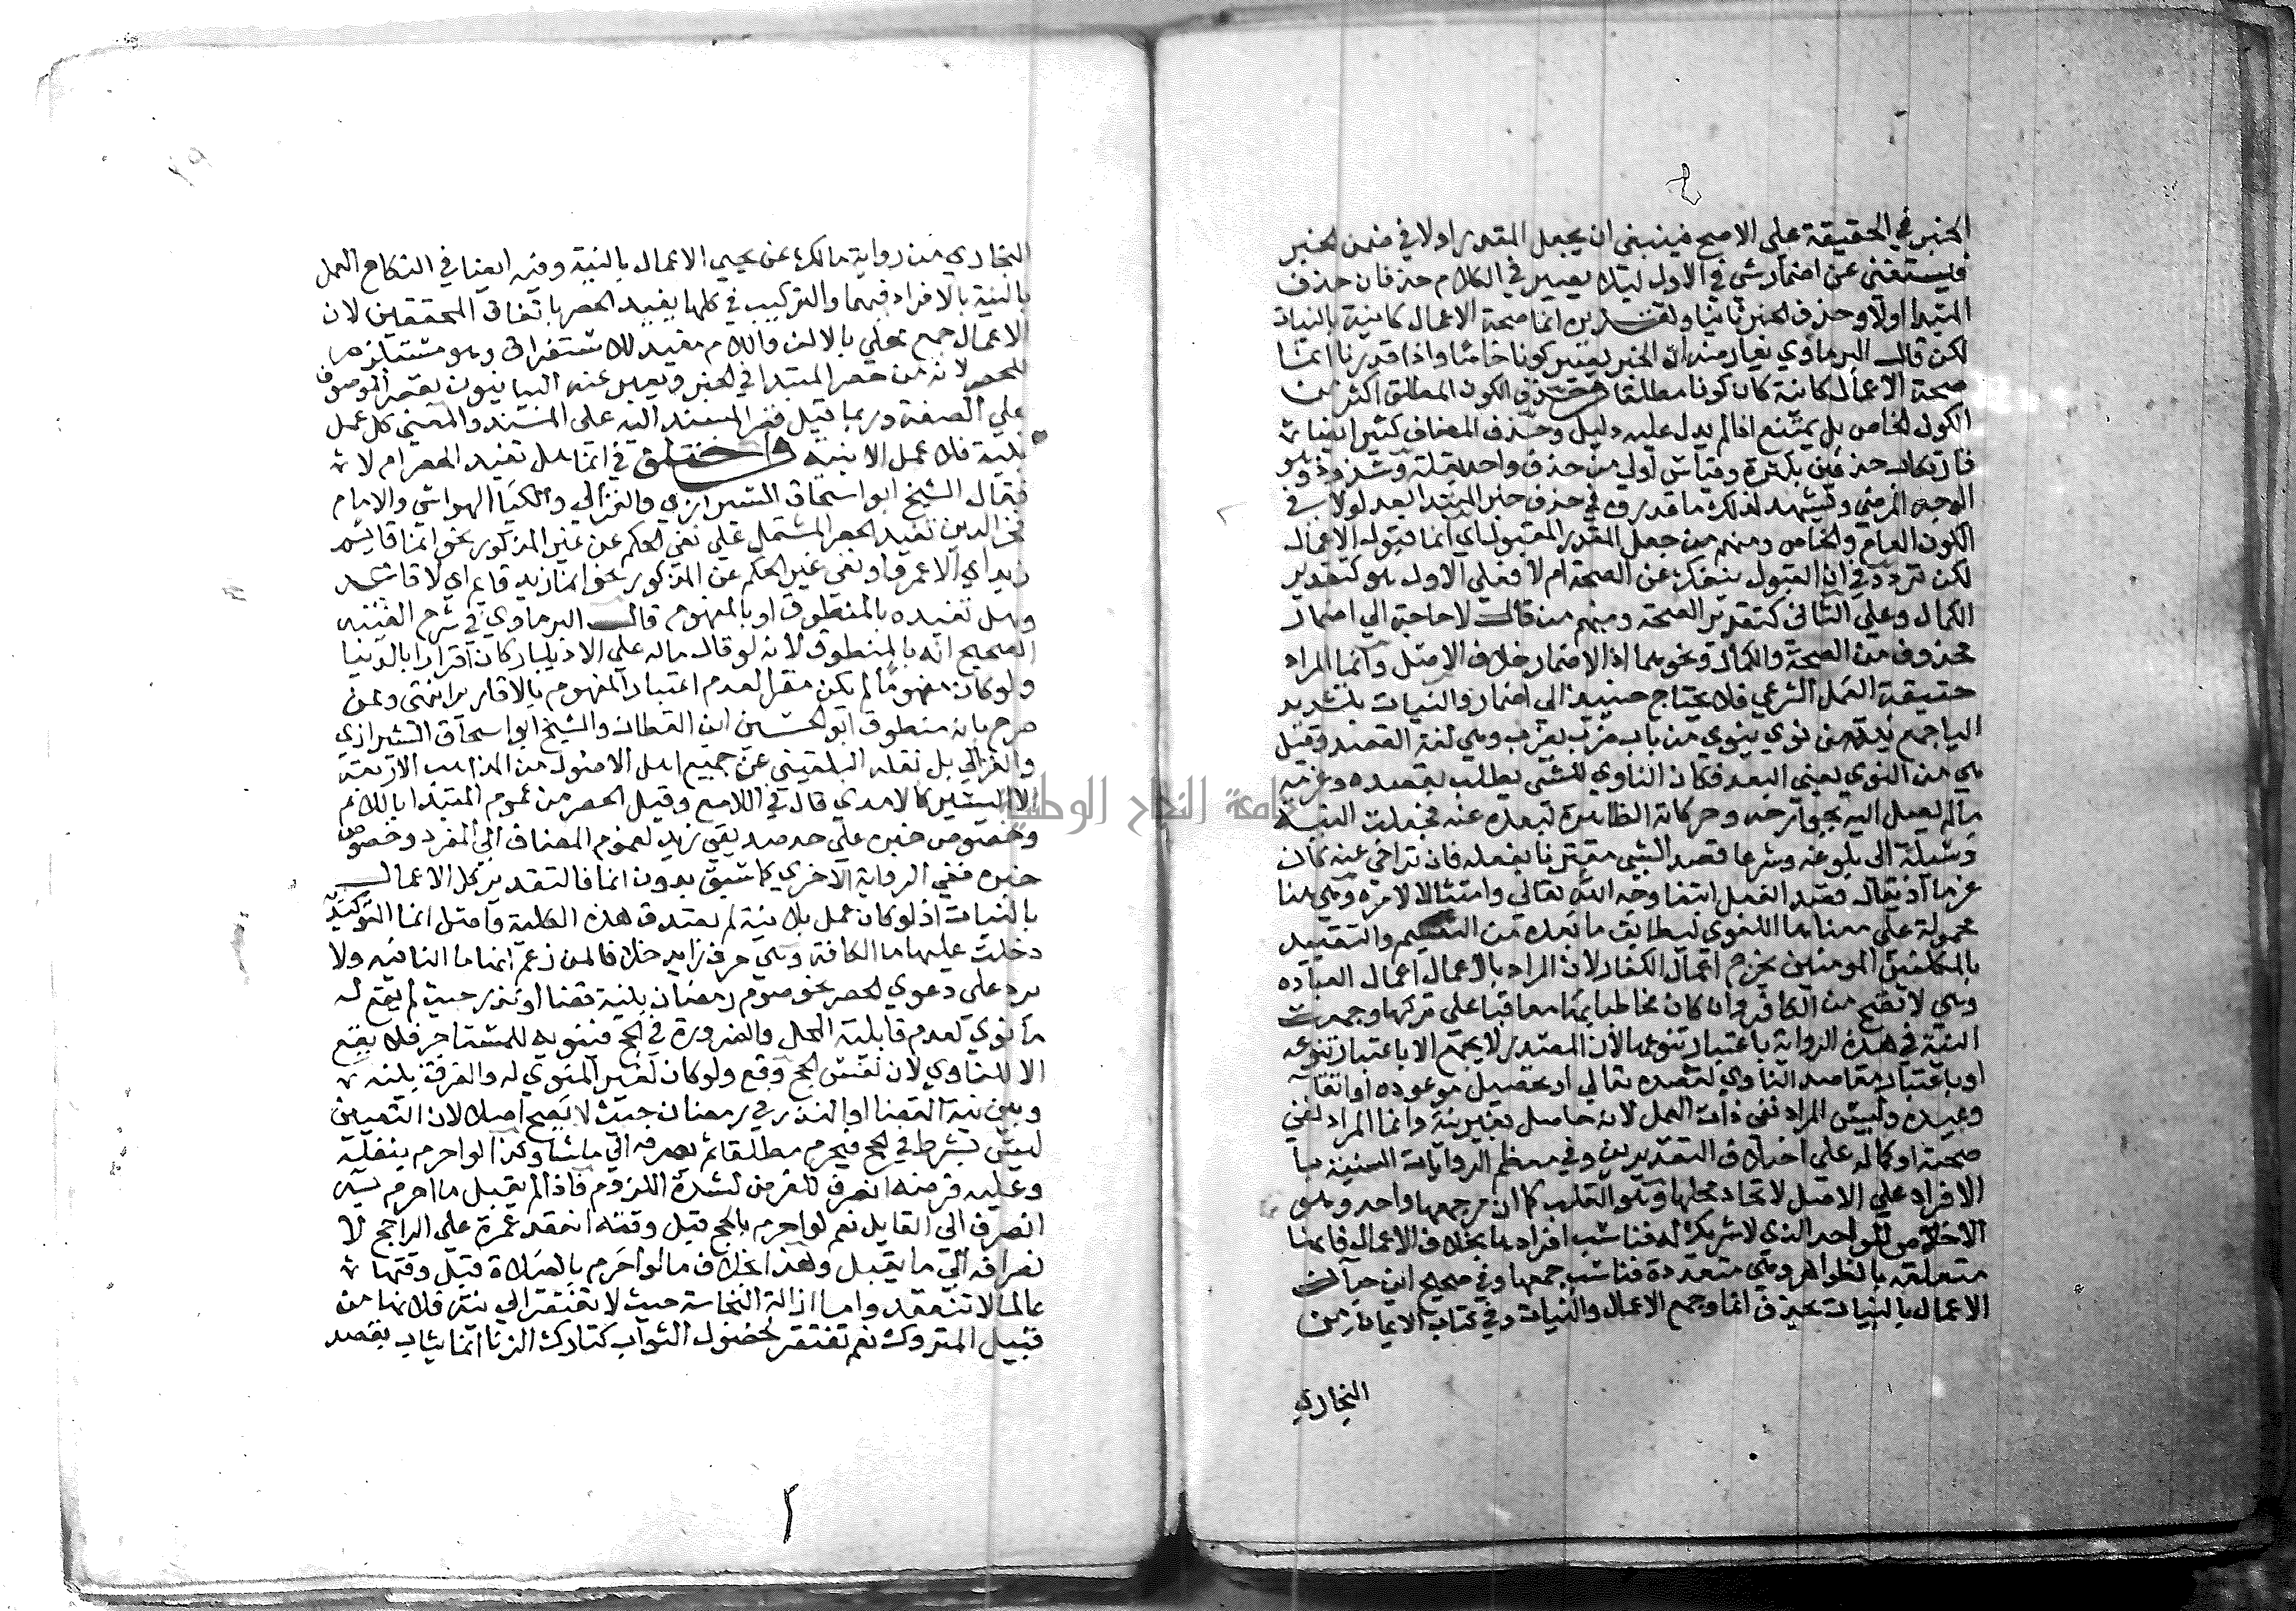 الخبر في الحقيقة على الاصح فينبغي ان يجعل المقدر اولا في ضمن الخبر
فيستغنى عن اضمار شي في الاول ليلا يصير في الكلام حذفان حذف
المبتدا اولا وحذف الخبر ثانيا وتقديره انما صحة الاعمال كاينة بالنيات
لكن قال البرماوي يعارضه ان الخبر يصير كونا خاصا واذا قدرنا انما
صحة الاعمال كاينة كان كونا مطلقا وحذف الكون المطلق اكثر من
الكون الخاص بل يمتنع اذا لم يدل عليه دليل وحذف المضاف كثير ايضا
فارتكاب حذفين بكثرة وقياس اولى من حذف واحد بقلة وشذوذ وهو
الوجه المرضي ويشهد لذلك ما قدروه في حذف خبر المبتدا بعد لولا في
الكون العام والخاص ومنهم من جعل المقدر القبول اي انما قبول الاعمال
لكن تردد في ان القبول ينفك عن الصحة ام لا فعلى الاول هو كتقدير
الكمال وعلى الثاني كتقدير الصحة ومنهم من قال لا حاجة الى اضمار
محذوف من الصحة والكمال ونحوهما اذ الاضمار خلاف الاصل وانما المراد
حقيقة العمل الشرعي فلا يحتاج حينيذ الى اضمار والنيات بتشديد
اليا جمع نية من نوى ينوي من باب ضرب يضرب وهي لغة القصد وقيل
هي من النوى بمعنى البعد فكان الناوي للشي يطلب بقصده وعزمه
ما لم يصل اليه بجوارحه وحركاته الظاهرة لبعده عنه فجعلت النية
وسيلة الى بلوغه وشرعا قصد الشي مقترنا بفعله فان تراخى عنه كان
عزما او يقال قصد الفعل ابتغا وجه الله تعالى وامتثالا لامره وهي هنا
محمولة على معناها اللغوي ليطابق ما بعده من التقسيم والتقييد
بالمكلفين المومنين يخرج اعمال الكفار لان المراد بالاعمال اعمال العباده
وهي لا تصح من الكافر وان كان مخاطبا بها معاقبا على تركها وجمعت
النية في هذه الرواية باعتبار تنوعها لان المصدر لا يجمع الا باعتبار تنوعه
او باعتبار مقاصد الناوي كقصده تعالى او تحصيل موعوده او اتقا
وعيده وليس المراد نفي ذات العمل لانه حاصل بغير نية وانما المراد نفي
صحته او كماله على اختلاف التقديرين وفي معظم الروايات النية بها
الافراد على الاصل لاتحاد محلها وهو القلب كما ان مرجعها واحد وهو
الاخلاص للواحد الذي لا شريك له فناسب افرادها بخلاف الاعمال فانها
متعلقة بالظواهر وهي متعددة فناسب جمعها وفي صحيح ابن حبان
الاعمال بالنيات بحذف انما وجمع الاعمال والنيات وفي كتاب الايمان من
البخاري
البخاري من رواية مالك عن يحيى الاعمال بالنية وفيه ايضا في النكاح العمل
بالنية بالافراد فيهما والتركيب في كلها يفيد الحصر باتفاق المحققين لان
الاعمال جمع محلى بالالف واللام مفيد للاستغراق وهو مستلزم
للحصر لانه من حصر المبتدا في الخبر ويعبر عنه البيانيون بقصر الموصوف
على الصفة وربما قيل قصر المسند اليه على المسند والمعنى كل عمل
بنية فلا عمل الا بنية واختلف في انما هل تفيد الحصر ام لا
فقال الشيخ ابو اسحاق الشيرازي والغزالي والكيا الهراسي والامام
فخر الدين تفيد الحصر المشتمل على نفي الحكم عن غير المذكور نحو انما قايم
زيد اي لا عمرو او نفي غير الحكم عن المذكور نحو انما زيد قايم اي لا قاعد
وهل تفيده بالمنطوق او بالمفهوم قال البرماوي في شرح الفيته
الصحيح انه بالمنطوق لانه لو قال ماله علي الا دينار كان اقرارا بالدينار
ولو كان مفهوما لم يكن مقرا لعدم اعتبار المفهوم بالاقارير انتهى وممن
صرح بانه منطوق ابو الحسين ابن القطان والشيخ ابو اسحاق الشيرازي
والغزالي بل نقله البلقيني عن جميع اهل الاصول من المذاهب الاربعة
الا اليسير كالامدي قال في اللامع وقيل الحصر من عموم المبتدا باللام
وخصوص خبره على حد صديقي زيد لعموم المضاف الى المفرد وخصوص
خبره ففي الرواية الاخرى كما سبق بدون انما فالتقدير كل الاعمال
بالنيات اذ لو كان عمل بلا نية لم يصدق هذه الكلية واصل انما التوكيدية
دخلت عليها ما الكافة وهي حرف زايد خلافا لمن زعم انها ما النافية ولا
يرد على دعوى الحصر نحو صوم رمضان بنية قضا او نذر حيث لم يقع له
ما نوى لعدم قابلية المحل والضرورة في الحج ينويه للمستاجر فلا يقع
الا للناوي لان نفس الحج وقع ولو كان لغير المنوي له والفرق بينه
وبين نية القضا او النذر في رمضان حيث لا يصح اصلا لان التعيين
ليس بشرط في الحج فيحرم مطلقا ثم يصرفه الى ما شا وكذا لو احرم بنفله
وعليه فرضه انصرف للفرض لشدة اللزوم فاذا لم يقبل ما احرم به
انصرف الى القابل نعم لو احرم بالحج قبل وقته انعقد عمرة على الراجح لا
نصرافه الى ما يقبل وهذا بخلاف ما لو احرم بالصلاة قبل وقتها
عالما لا تنعقد واما ازالة النجاسة حيث لا تفتقر الى نية فلانها من
قبيل المتروك نعم تفتقر لحصول الثواب كتارك الزنا انما يثاب بقصد
جامعة النجاح الوطنية